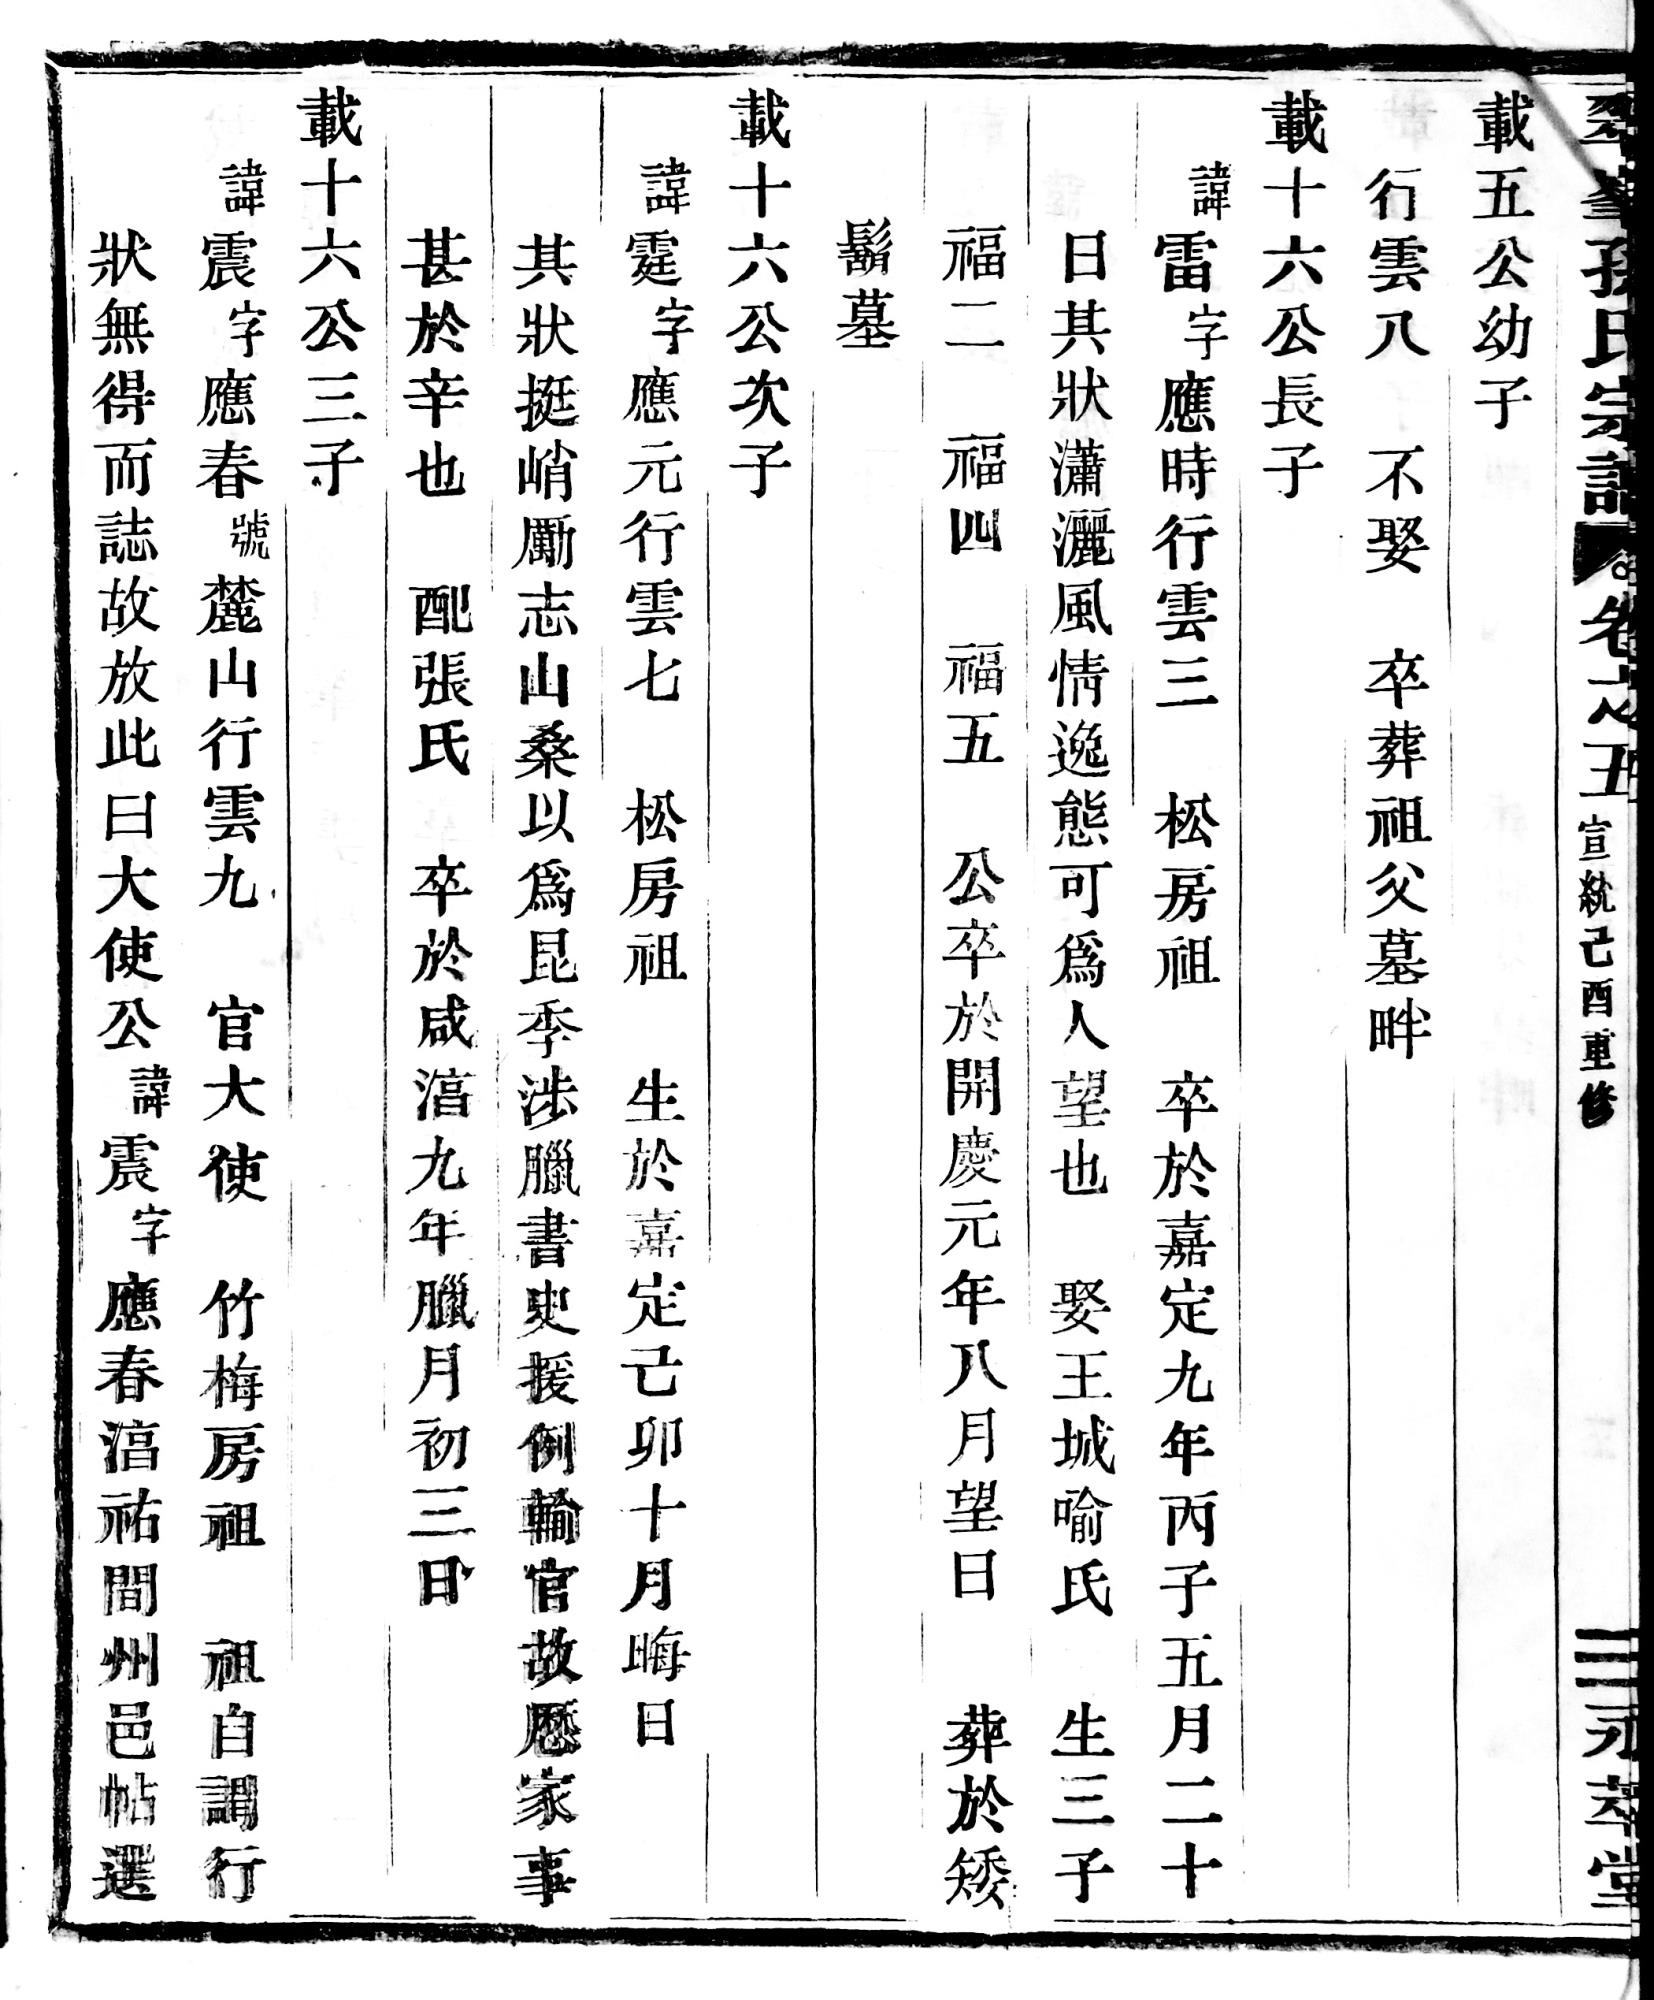 孫氏宗譜 卷之五 宣統己酉重修 三 永萃堂
載五公幼子
行雲八 不娶 卒葬祖父墓畔
載十六公長子
諱雷字應時行雲三 松房祖 卒於嘉定九年丙子五月二十
日其狀瀟灑風情逸態可爲人望也 娶王城喻氏 生三子
福二 福四 福五 公卒於開慶元年八月望日 葬於矮
鬍墓
載十六公次子
諱霆字應元行雲七 松房祖 生於嘉定己卯十月晦日
其狀挺峭勵志山桑以爲昆季涉臘書史援例輸官故厯家事
甚於辛也 配張氏 卒於咸湻九年臘月初三日
載十六公三子
諱震字應春號麓山行雲九 官大使 竹梅房祖 祖自謂行
狀無得而誌故放此曰大使公諱震字應春湻祐間州邑帖選